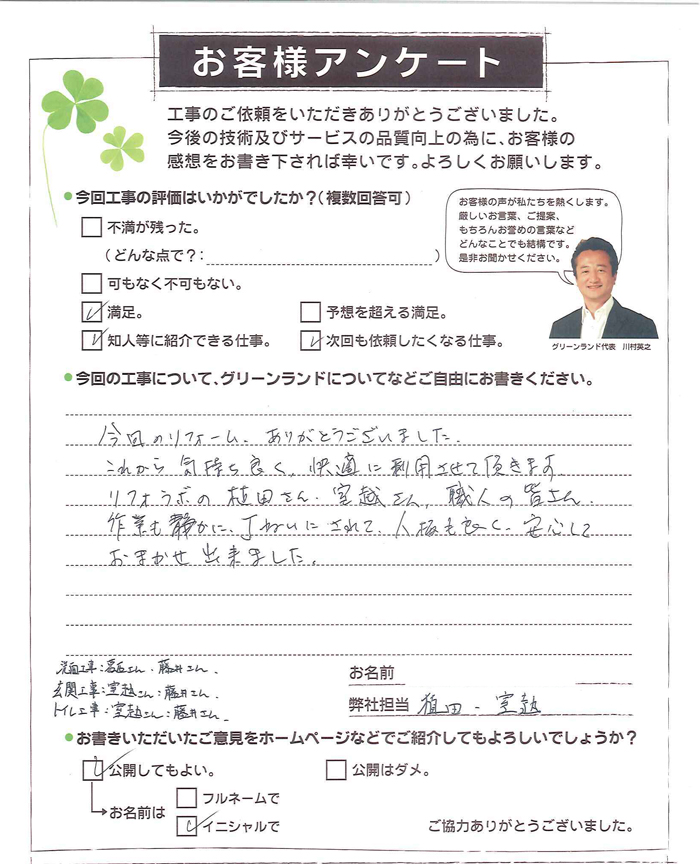 お客様アンケート
工事のご依頼をいただきありがとうございました。
今後の技術及びサービスの品質向上の為に、お客様の
感想をお書き下されば幸いです。よろしくお願いします。
今回工事の評価はいかがでしたか？（複数回答可）
不満が残った。
（どんな点で？： ）
可もなく不可もない。
満足。
予想を超える満足。
知人等に紹介できる仕事。
次回も依頼したくなる仕事。
お客様の声が私たちを熱くします。
厳しいお言葉、ご提案、
もちろんお誉めの言葉など
どんなことでも結構です。
是非お聞かせください。
グリーンランド代表 川村英之
今回の工事について、グリーンランドについてなどご自由にお書きください。
今回のリフォーム、ありがとうございました。
これから気持ち良く、快適に利用させて頂きます
リフォラボの植田さん、室越さん、職人の皆さん、
作業も静かに、丁ねいにされて、人柄も良く、安心して
おまかせ出来ました。
洗面工事：さん、藤井さん、
玄関工事：室越さん：藤井さん、
トイレ工事：室越さん：藤井さん
お名前
弊社担当 植田 - 室越
お書きいただいたご意見をホームページなどでご紹介してもよろしいでしょうか？
公開してもよい。
公開はダメ。
お名前は
フルネームで
イニシャルで
ご協力ありがとうございました。